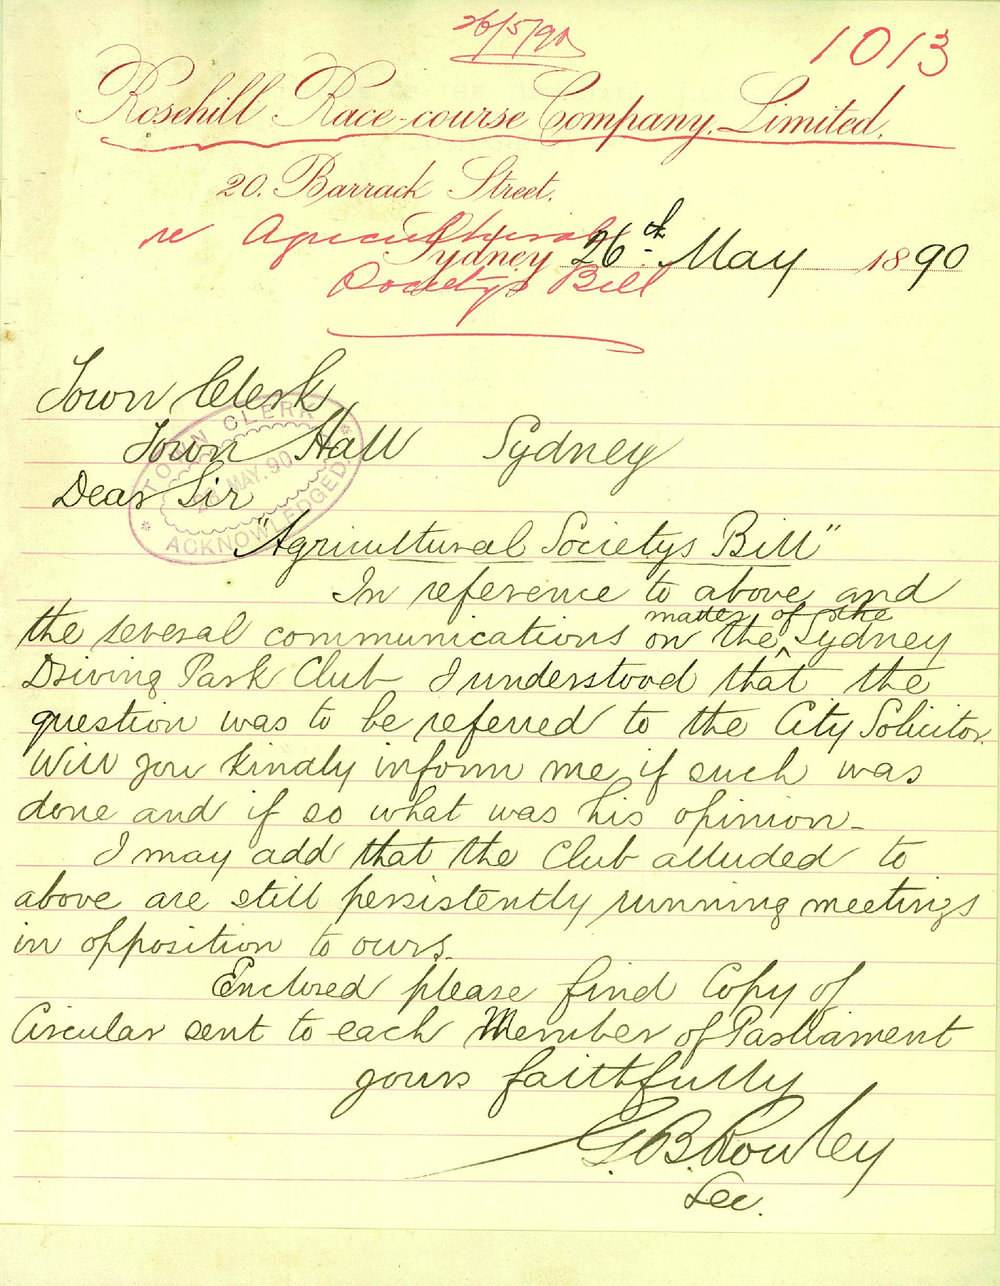 26/5/90
1013
Rosehill Race-course Company, Limited.
20. Barrack Street.
re Agricultural
Sydney 26th May 1890
Societys Bill
Town Clerk
Town Hall Sydney
Dear Sir
TOWN CLERK
28 MAY. 90
ACKNOWLEDGED.
"Agricultural Societys Bill"
In reference to above and
the several communications on the matter of the Sydney
Driving Park Club I understood that the
question was to be referred to the City Solicitor.
Will you kindly inform me if such was
done and if so what was his opinion-
I may add that the Club alluded to
above are still persistently running meetings
in opposition to ours.
Enclosed please find Copy of
Circular sent to each Member of Parliament
yours faithfully
G. B. Rowley
Sec.